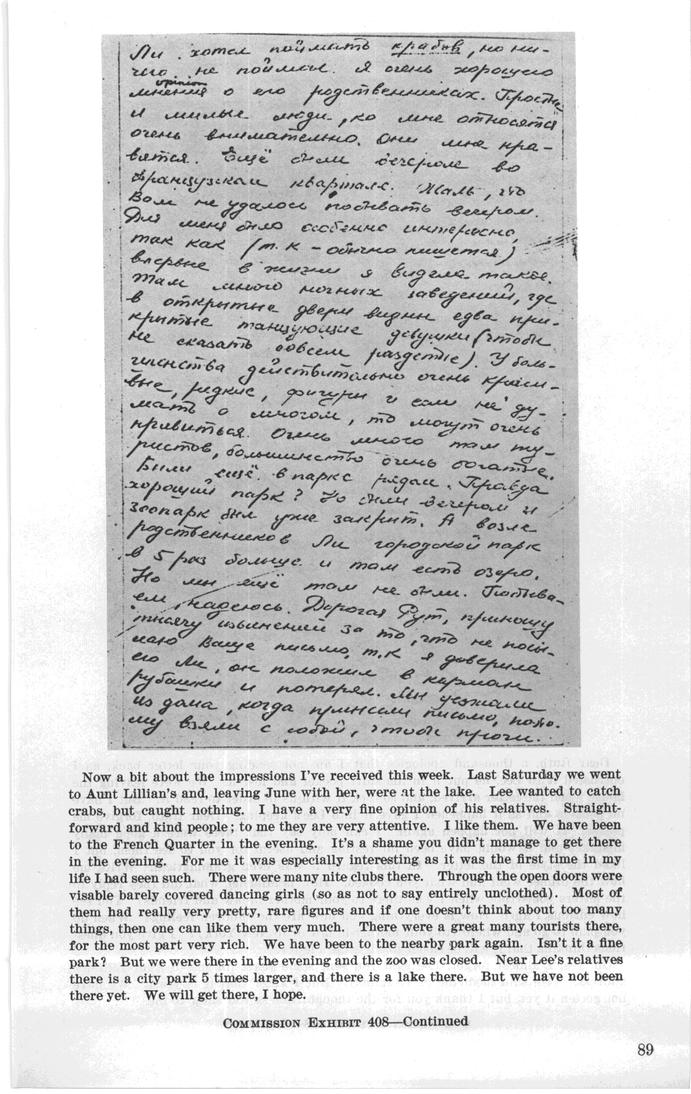 Ли хотел поймать крабов, но ни-
чего не поймал. Я очень хорошего
opinion
мнения о его родственниках. Простые
и милые люди, ко мне относятся
очень внимательно. Они мне нра-
вятся. Ещё были вечером во
французском квартале. Жаль, что
Вам не удалось побывать вечером.
Для меня было особенно интересно,
так как (т.к – обычно пишется)
впервые в жизни я видела такое.
Там много ночных заведений, где
в открытые двери видны едва при-
крытые танцующие девушки (чтобы
не сказать совсем раздетые). У боль-
шинства действительно очень краси-
вые, редкие, фигуры и если не ду-
мать о многом, то могут очень
нравиться. Очень много там ту-
ристов, большинство очень богатые.
Были ещё в парке рядом. Правда
хороший парк? Но были вечером и
зоопарк был уже закрыт. А возле
родственников Ли городской парк
в 5 раз больше и там есть озеро.
Но мы ещё там не были. Побыва-
ем, надеюсь. Дорогая Рут, приношу
тысячу извинений за то, что не посы-
лаю Ваше письмо, т.к я доверила
его Ли, он положил в карман
рубашки и потерял. Мы уезжали
из дома, когда принесли письмо, пото-
му взяли с собой, чтобы проч.
Now a bit about the impressions I've received this week. Last Saturday we went
to Aunt Lillian's and, leaving June with her, were at the lake. Lee wanted to catch
crabs, but caught nothing. I have a very fine opinion of his relatives. Straight-
forward and kind people; to me they are very attentive. I like them. We have been
to the French Quarter in the evening. It's a shame you didn't manage to get there
in the evening. For me it was especially interesting as it was the first time in my
life I had seen such. There were many nite clubs there. Through the open doors were
visable barely covered dancing girls (so as not to say entirely unclothed). Most of
them had really very pretty, rare figures and if one doesn't think about too many
things, then one can like them very much. There were a great many tourists there,
for the most part very rich. We have been to the nearby park again. Isn't it a fine
park? But we were there in the evening and the zoo was closed. Near Lee's relatives
there is a city park 5 times larger, and there is a lake there. But we have not been
there yet. We will get there, I hope.
COMMISSION EXHIBIT 408—Continued
89